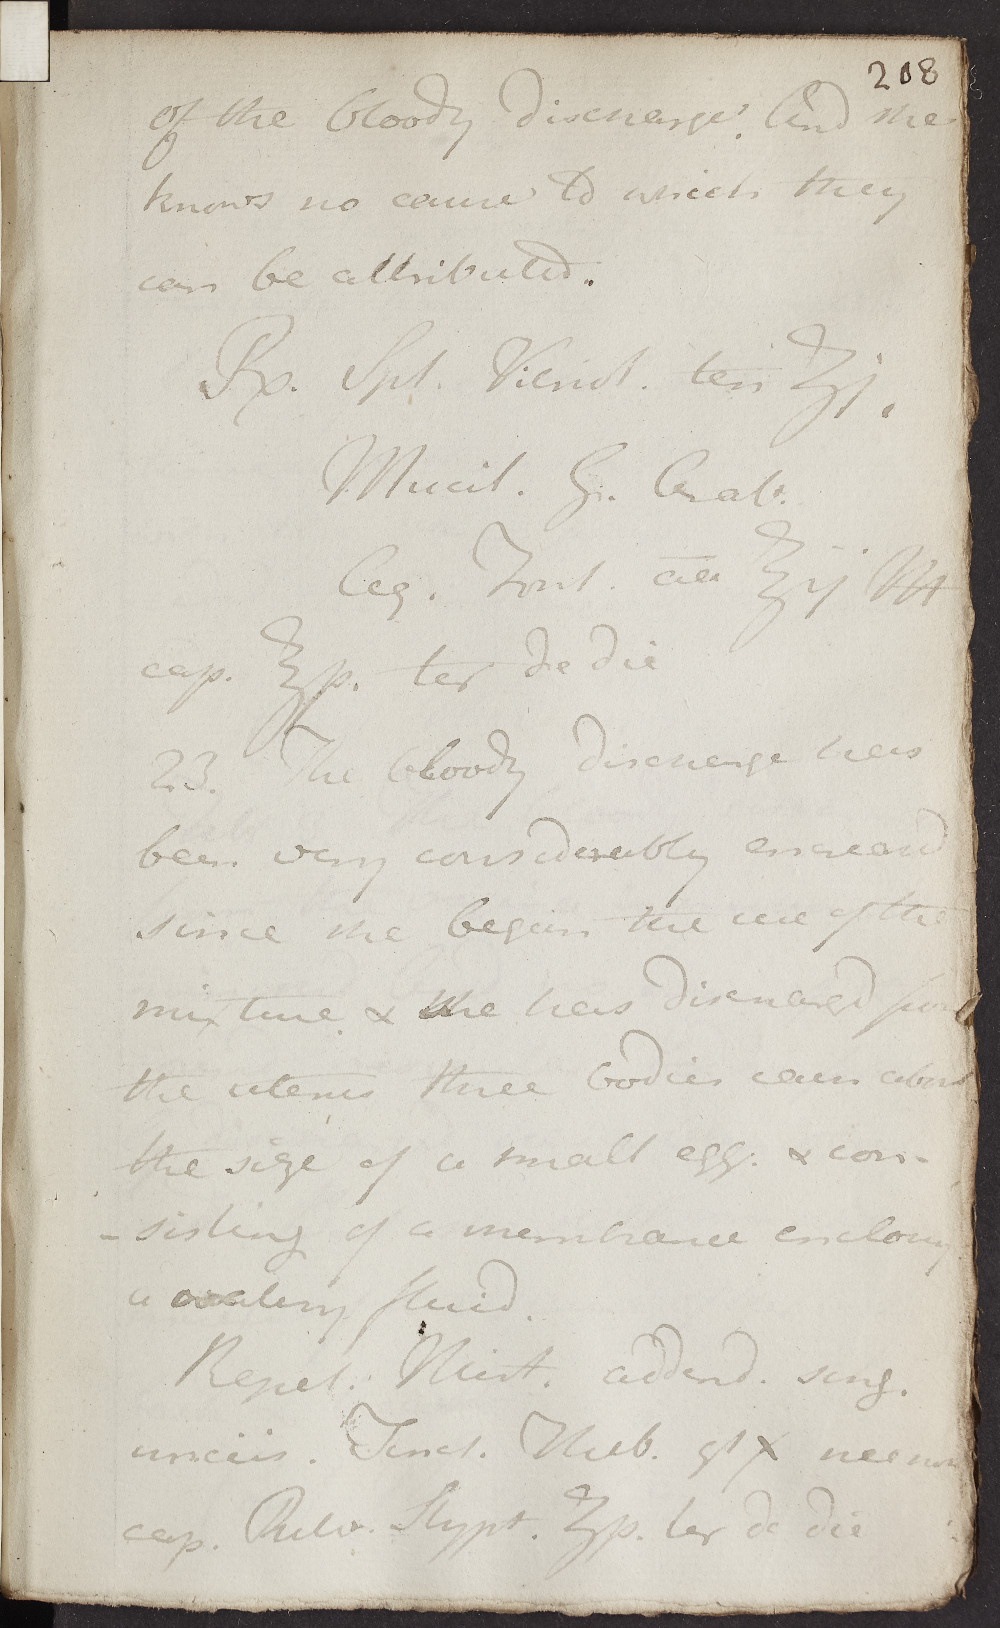 208
of the bloody discharge. And she
knows no cause to which they
can be attributed.
Rx. Spt. Vitriol. ten ʒj.
Mucil. G. Arab.
Aq. Font. aa ℥ij M
cap. ℥ſs. ter de die
23. The bloody discharge has
been very considerably encreasd
since she began the use of the
mixture & she has discharged from
the uterus three bodies each about
the size of a small egg. & con-
-sisting of a membrane enclosing
a watery fluid.
Repet. Mist. addend. sing.
unciis. Tinct. Theb. gt X necnon
cap. Pulv. Stypt. ʒſs. ter de die